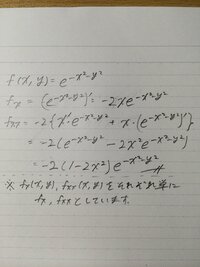 f(x,y)=e^{-x²-y²}
f_x=(e^{-x²-y²})'=-2xe^{-x²-y²}
f_{xx}=-2{x'·e^{-x²-y²}+x·(e^{-x²-y²})'}
=-2(e^{-x²-y²}-2x²e^{-x²-y²})
=-2(1-2x²)e^{-x²-y²}
※ f_x(x,y), f_{xx}(x,y)をそれぞれ単に
f_x, f_{xx}としています。